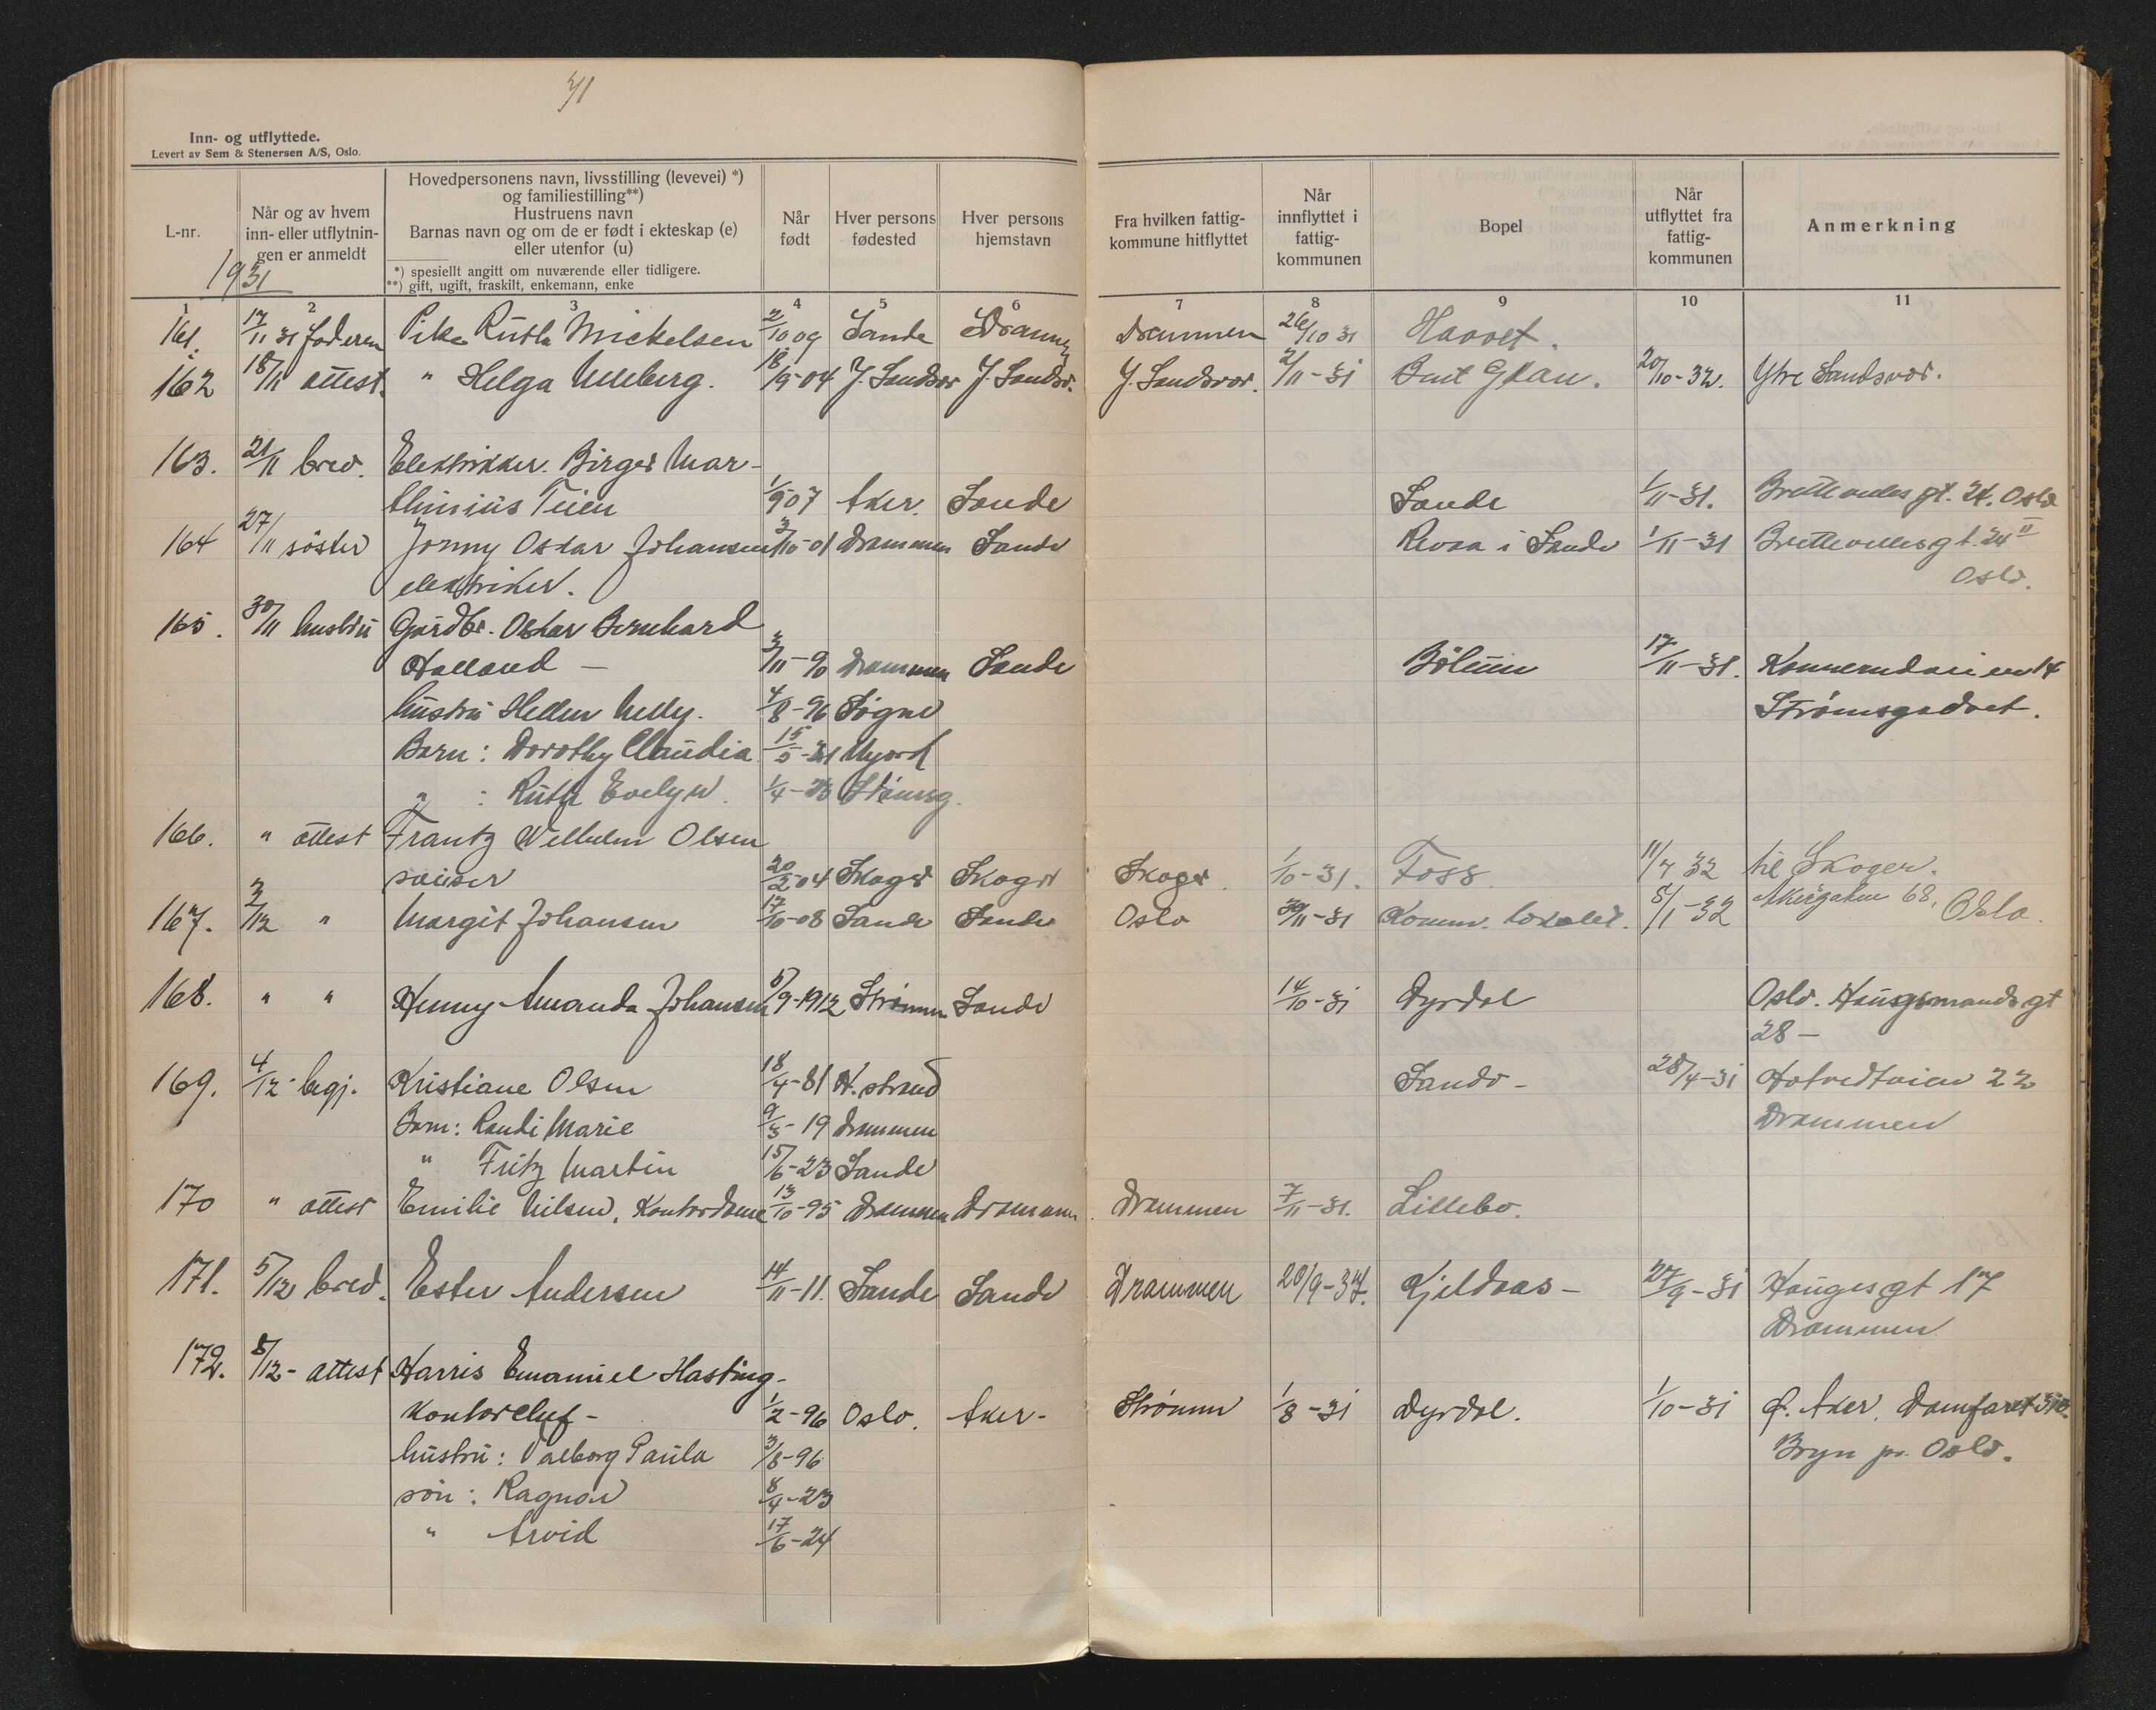 31
Inn- og utflyttede.
Levert av Sem & Stenersen A/S, Oslo.
L-nr. Når og av hvem inn- eller utflytnin- gen er anmeldt Hovedpersonens navn, livsstilling (levevei) *) og familiestilling**) Hustruens navn Barnas navn og om de er født i ekteskap (e) eller utenfor (u) Når født Hver persons fødested Hver persons hjemstavn Fra hvilken fattig- kommune hitflyttet Når innflyttet i fattig- kommunen Bopel Når utflyttet fra fattig- kommunen Anmerkning
*) spesiellt angitt om nuværende eller tidligere.
**) gift, ugift, fraskilt, enkemann, enke
1931
1 2 3 4 5 6 7 8 9 10 11
161. 17/11 31 faderen Pike Ruth Mickelsen 2/10 09 Sande Drammen Drammen 26/10 31 Haavet.
162 18/11 attest. " Helga Ulleberg. 18/5-04 Y. Sandsvær Y. Sandsv. Y. Sandsvær. 2/11-31 Bent Gran. 20/10-32. Ytre Sandsvær.
163. 21/11 brev. Elektrikker. Birger Mar-
thinius Teien 1/9 07 Aker. Sande Sande 1/11-31. Brettevilles gt. 24. Oslo
164 27/11 søster Jonny Oskar Johansen 3/10-01 Drammen Sande Revaa i Sande 1/11-31 Brettevillesgt. 24 II
elektriker. Oslo.
165. 30/11 hustru Gårdbr. Oskar Bernhard
Halland - 3/11-90 Drammen Sande Bølum 17/11-31. 14
hustru Hellen Nelly. 4/8-96 Sogne Strømsgodset.
Barn: Dorothy Claudia 15/5-21
" : Ruth Evelyn. 1/4- Strømsg.
166. " attest Frantz Wilhelm Olsen
sveiser 20/2-04 Skoger Skoger Skoger. 1/10-31. Foss. 11/7 32 til Skoger.
167. 3/12 " Margit Johansen 17/10-08 Sande Sande Oslo 30/11-31 Komm. lokalet. 5/1-32 Akersgaten 68, Oslo.
168. " " Henny Amanda Johansen 5/9-1912 Strømm Sande 14/10-31 Dyrdal Oslo. Hausmandsgt
28 -
169. 4/12- begj. Kristiane Olsen 18/4-81 H. strand Sande- 28/4-31 Hotvedtveien 22
Barn: Randi Marie 9/5-19 Drammen Drammen
" Fritz Martin 15/6-23 Sande
170 " attest Emilie Nilsen, Kontordame 13/10-95 Drammen Drammen Drammen 7/11-31. Lillebo.
171. 5/12 brev. Ester Andersen 14/11-11. Sande Sande Drammen 20/9-37. Kjeldaas- 27/9-31 Haugesgt 17
Drammen
172. 8/12- attest Harris Emanuel Hasting-
kontorchef- 1/2-96 Oslo. Aker- Strømm 1/8-31 Dyrdal. 1/10-31 Ø. Aker. Damfaret
hustru: Valborg Paula 3/8-96 Bryn pr. Oslo.
søn: Ragnar 8/4-23
" Arvid 17/6-24